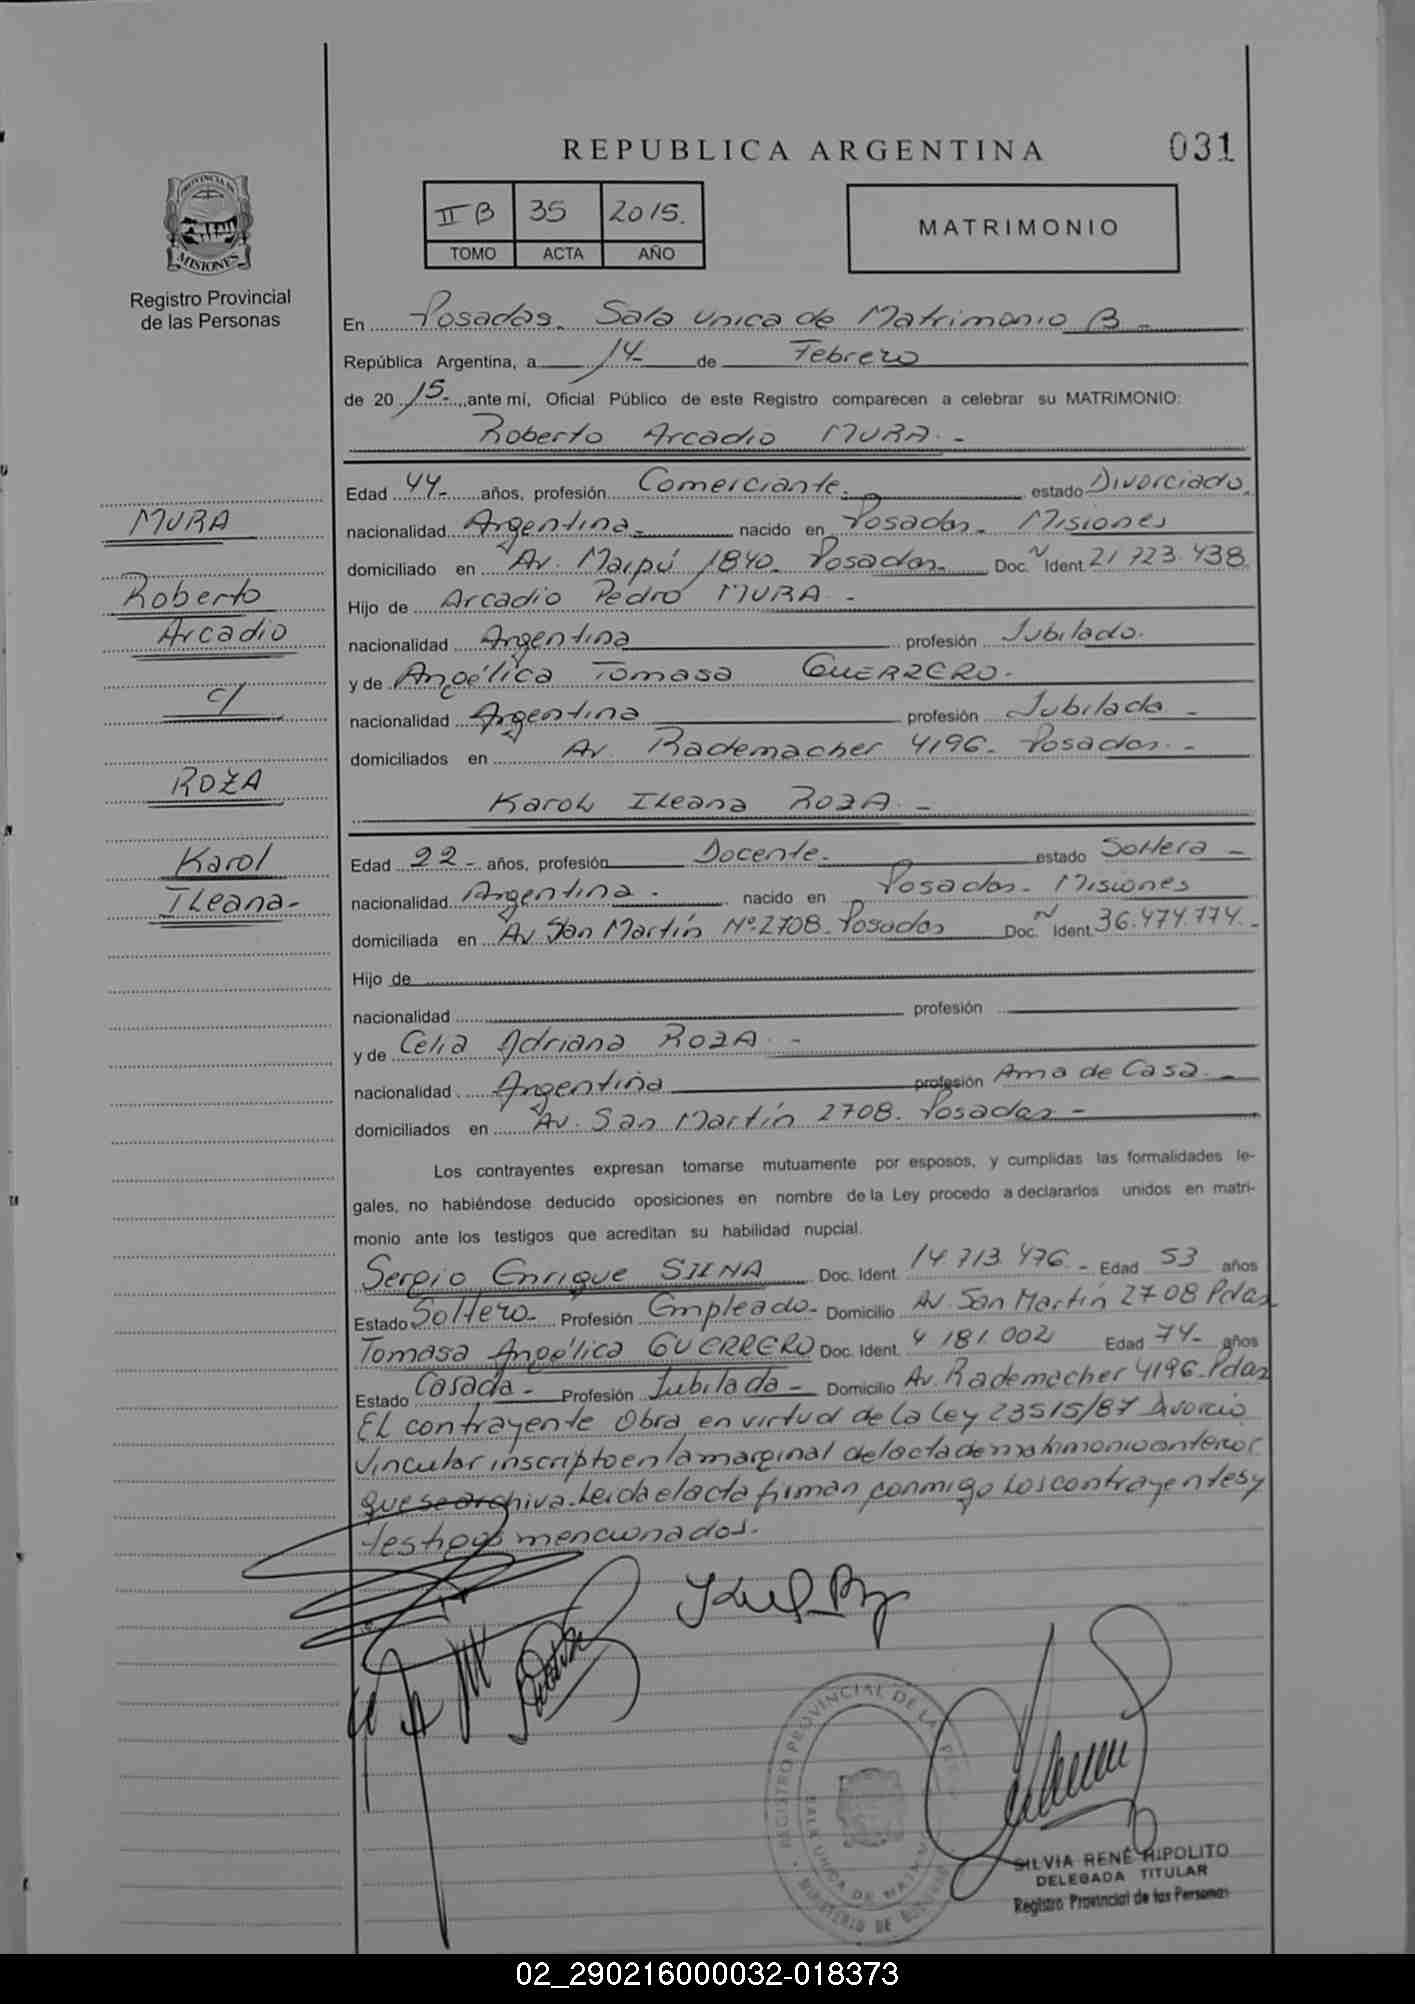 REPUBLICA ARGENTINA
031
PROVINCIA DE
MISIONES
Registro Provincial
de las Personas
II B 35 2015.
TOMO ACTA AÑO
MATRIMONIO
En Posadas. Sala unica de Matrimonio B -
República Argentina, a 14- de Febrero
de 2015-, ante mí, Oficial Público de este Registro comparecen a celebrar su MATRIMONIO:
Roberto Arcadio MURA. -
Edad 44- años, profesión Comerciante. estado Divorciado.
nacionalidad Argentina.- nacido en Posadas- Misiones
domiciliado en Av. Maipú 1840. Posadas- Doc. N Ident. 21 723.438
Hijo de Arcadio Pedro MURA. -
nacionalidad Argentina profesión Jubilado.
y de Angélica Tomasa GUERRERO.
nacionalidad Argentina profesión Jubilada -
domiciliados en Av. Rademacher 4196- Posadas. -
Karol Ileana ROZA. -
Edad 22- años, profesión Docente. estado Soltera -
nacionalidad Argentina. nacido en Posadas- Misiones
domiciliada en Av. San Martín Nº 2708- Posadas Doc. N Ident. 36.474.774.-
Hijo de
nacionalidad profesión
y de Celia Adriana ROZA. -
nacionalidad Argentina profesión Ama de Casa. -
domiciliados en Av. San Martín 2708. Posadas -
Los contrayentes expresan tomarse mutuamente por esposos, y cumplidas las formalidades le-
gales, no habiéndose deducido oposiciones en nombre de la Ley procedo a declararlos unidos en matri-
monio ante los testigos que acreditan su habilidad nupcial.
Sergio Enrique Doc. Ident. 14.713.476.- Edad 53 años
Estado Soltero- Profesión Empleado- Domicilio AV. San Martín 2708 Pdas
Tomasa Angélica GUERRERO Doc. Ident. 4 181.002 Edad 74- años
Estado Casada- Profesión Jubilada- Domicilio Av. Rademacher 4196-Pdas
El contrayente Obra en virtud de la Ley 23515/87 Divorcio
Vincular inscripto en la marginal del acta de matrimonio anterior
que se archiva. Leida el acta firman conmigo los contrayentes y
testigos mencionados.
MURA
Roberto
Arcadio
c/
ROZA
Karol
Ileana-
REGISTRO PROVINCIAL DE LA
SALA UNICA DE
MINISTERIO DE
SILVIA RENÉ HIPOLITO
DELEGADA TITULAR
Registro Provincial de las Personas
02_290216000032-018373